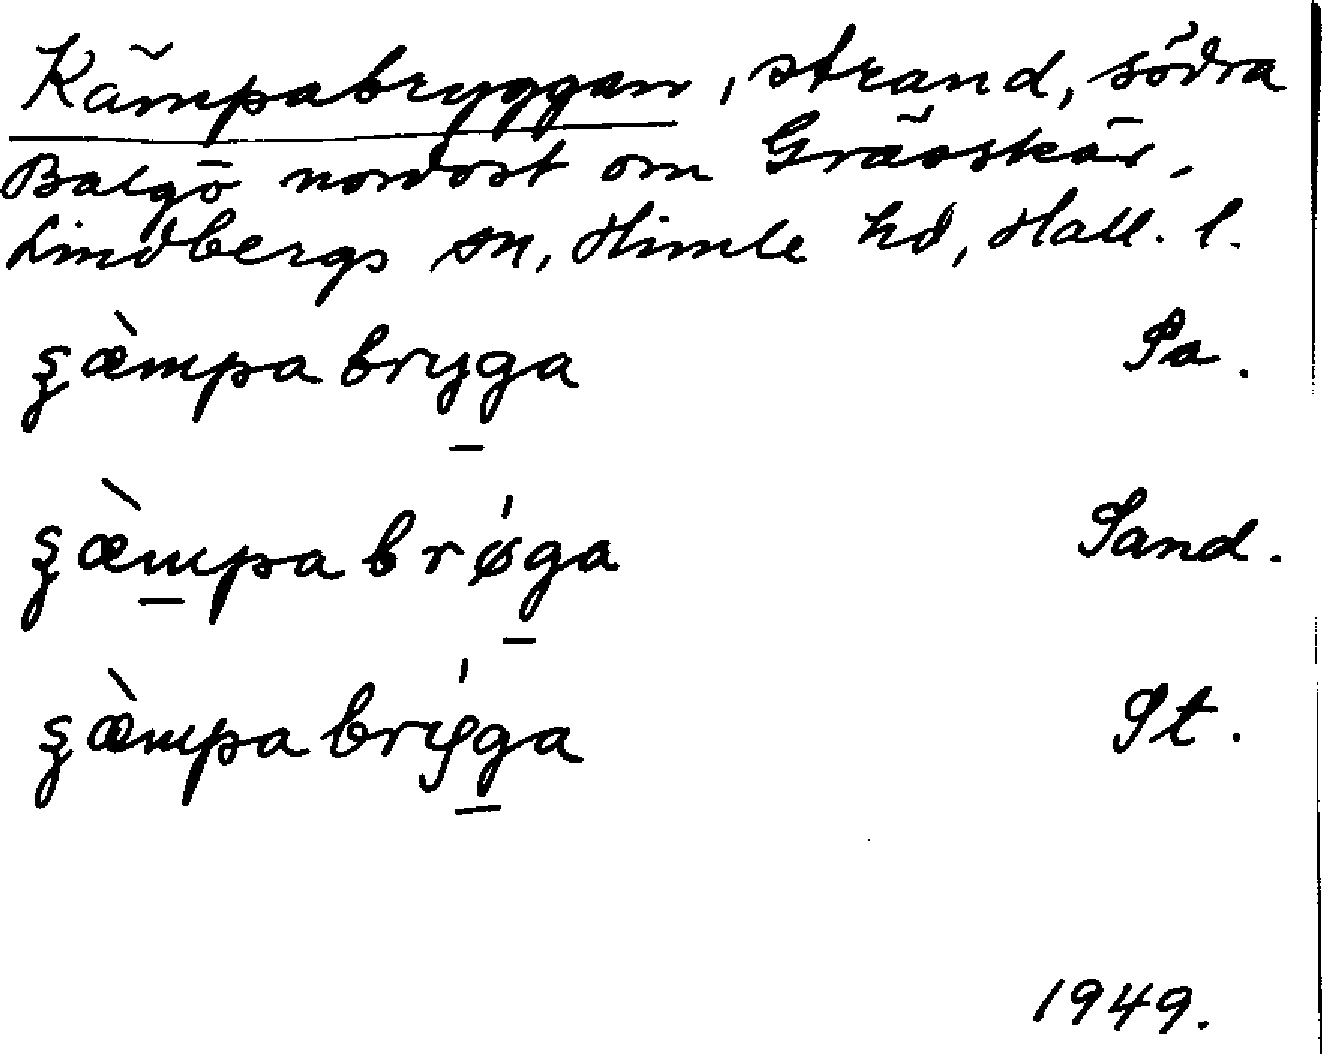 Kämpabryggan, strand, södra
Balgö nordost om Grässkär,
Lindbergs sn, Himle hd, Hall. l.
ʂæ̀mpabryga Pa.
ʂæ̀mpabrǿga Sand.
ʂæ̀mpabrýga St.
1949.